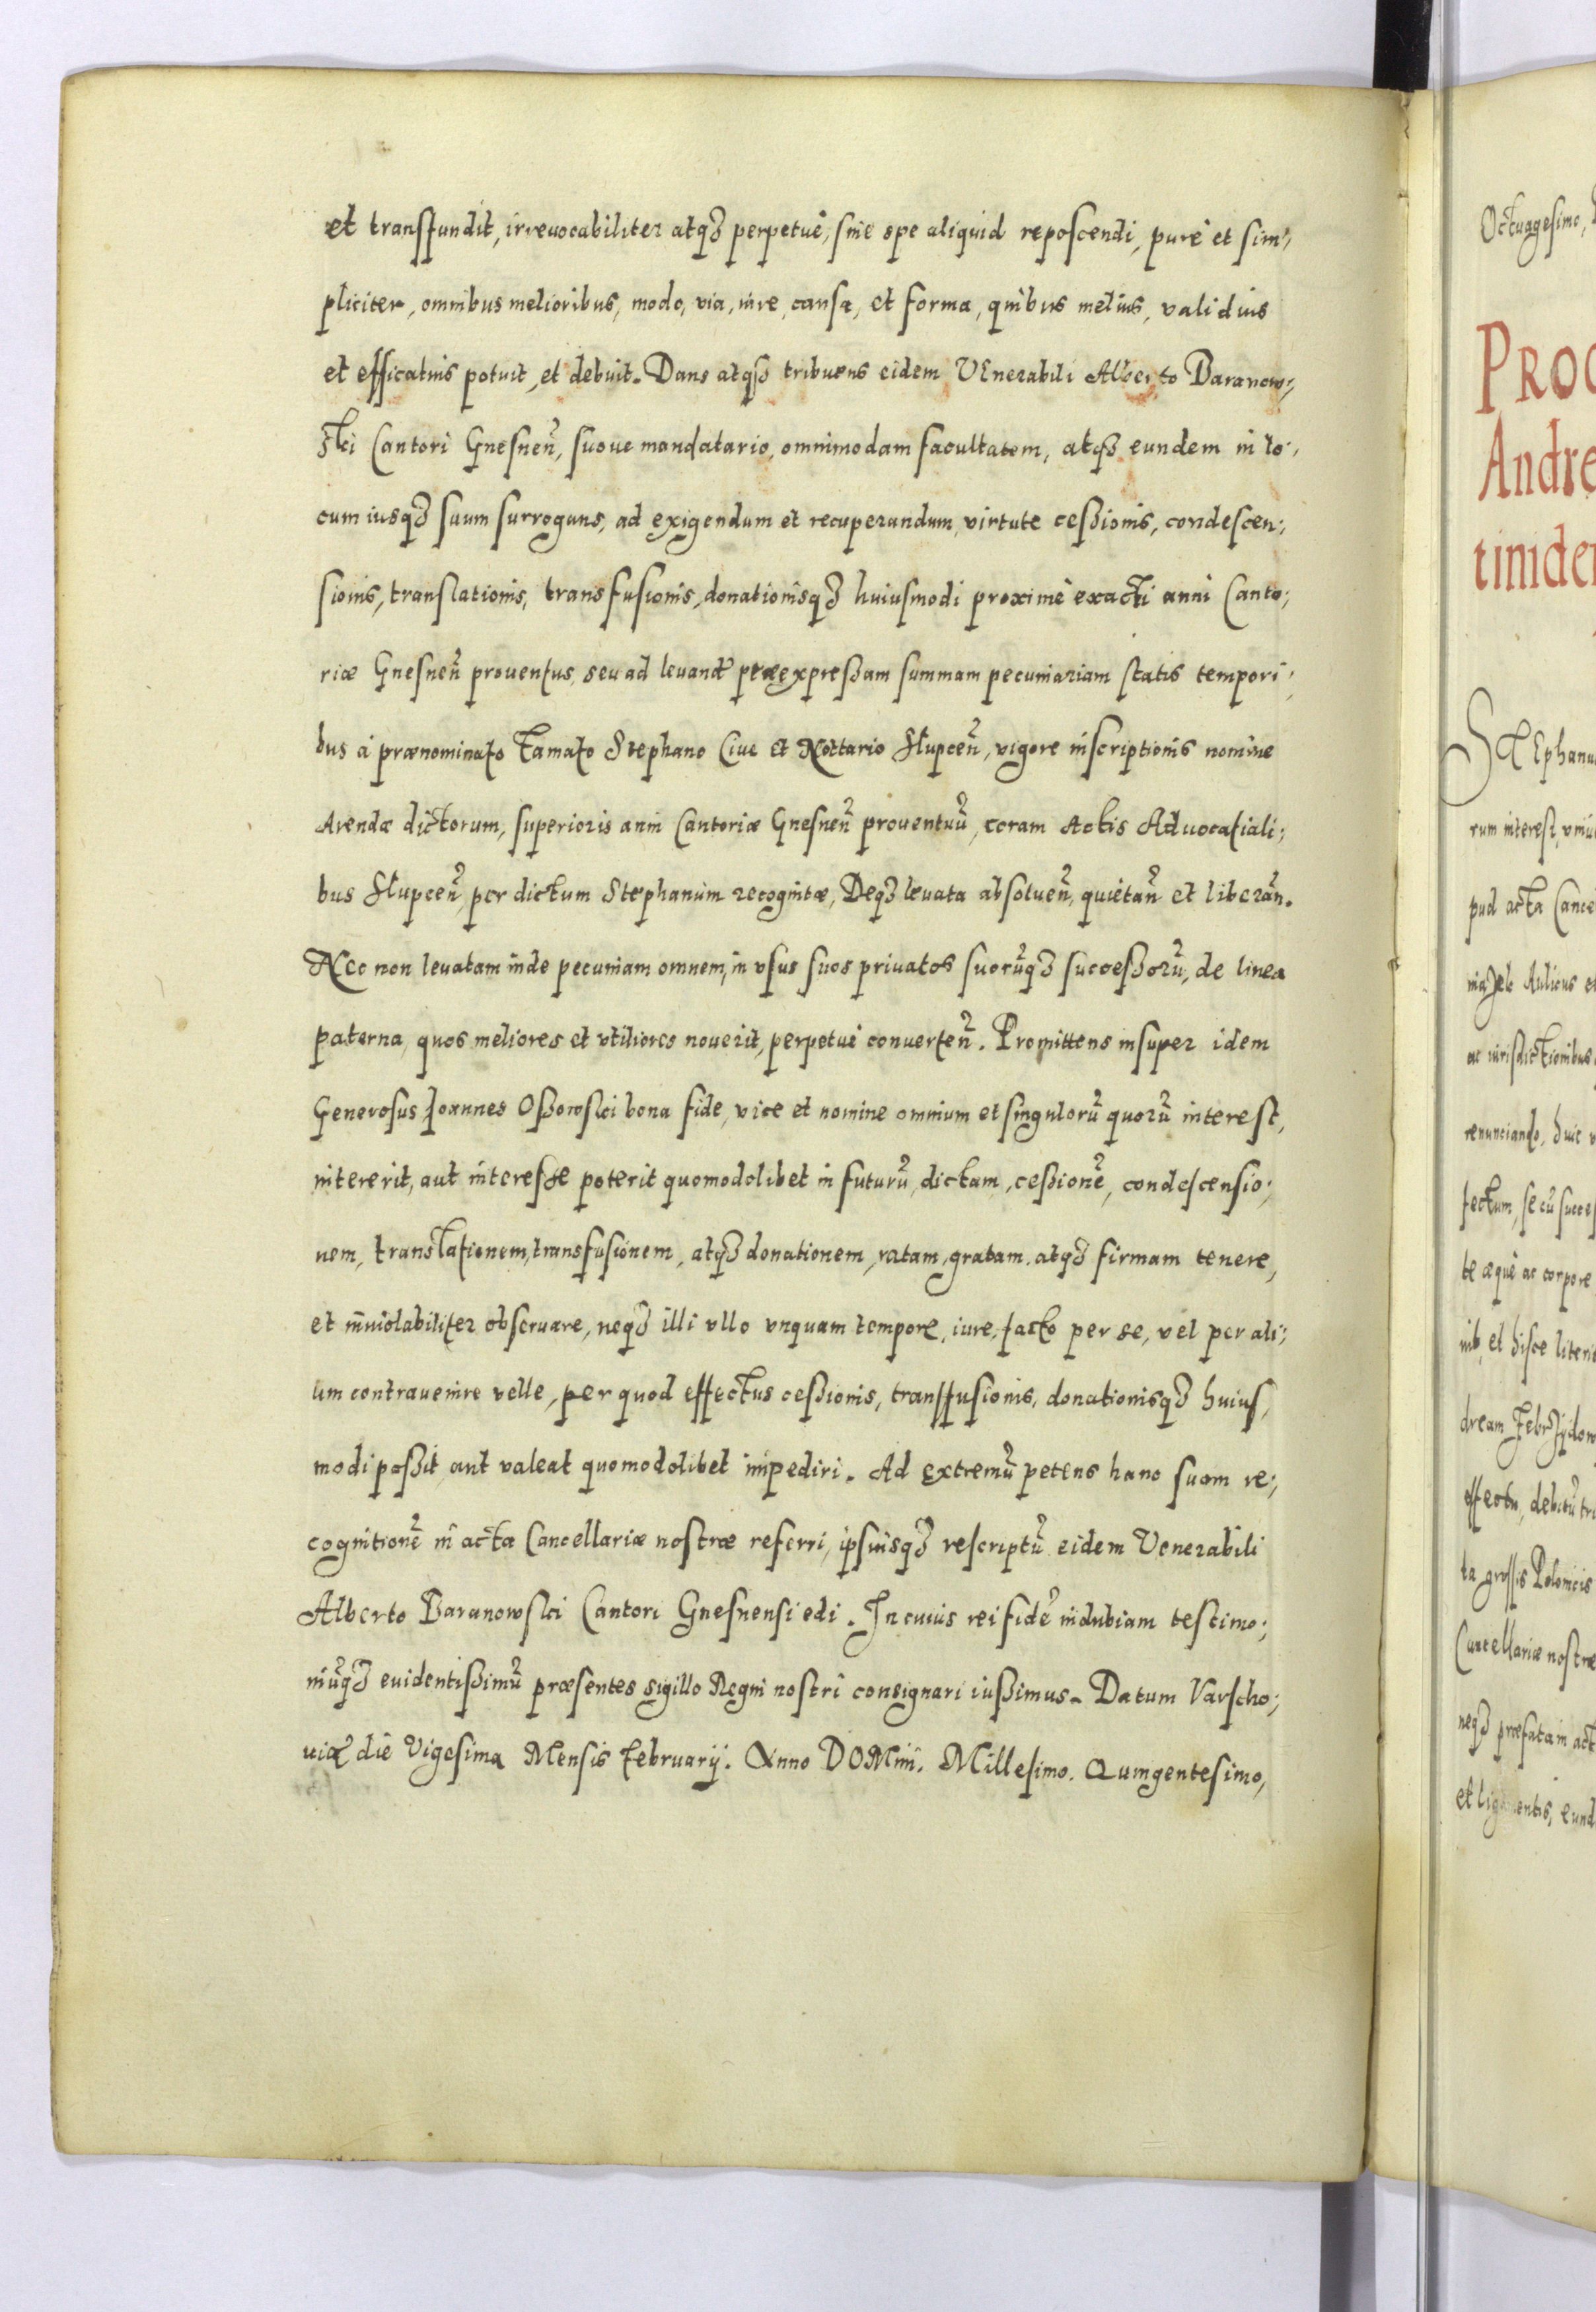 et transfundit, irreuocabiliter atq₃ perpetuè, sine spe aliquid reposcendi, purè et sim-,
pliciter, omnibus melioribus, modo, via, iure, causa, et forma, quibus melius, validius
et efficatius potuit, et debuit. Dans atq₃ tribuens eidem VEnerabili Alberto Baranow-,
ski Cantori Gnesnen̄, suoue mandatario, omnimodam facultatem, atq₃ eundem in lo-,
cum iusq₃ suum surrogans, ad exigendum et recuperandum, virtute ceßionis, condescen-,
sionis, translationis, transfusionis, donationisq₃ huiusmodi proximè exacti anni Canto-,
riæ Gnesnen̄ prouentus, seu ad leuand præexpreßam summam pecuniariam statis tempori-,
bus à prænominato famato Stephano Ciue et Nottario Slupcen̄, vigore inscriptionis nomine
Arendæ dictorum, superioris anni Cantoriæ Gnesnen̄ prouentuū, coram Actis Aduocatiali-,
bus Slupcen̄, per dictum Stephanum recognitæ, Deq₃ leuata absoluen̄, quietan̄ et liberan̄.
NEc non leuatam inde pecuniam omnem, in vsus suos priuatos suorūq₃ succeßorū, de linea
paterna, quos meliores et vtiliores nouerit, perpetuè conuerten̄. Promittens insuper idem
Generosus Joannes Oßowski bona fide, vice et nomine omnium et singulorū quorū interest,
intererit, aut intereße poterit quomodolibet in futurū, dictam, ceßionē, condescensio-,
nem, translationem, transfusionem, atq₃ donationem, ratam, gratam, atq₃ firmam tenere,
et inuiolabiliter obseruare, neq₃ illi vllo vnquam tempore, iure, facto per se, vel per ali-,
um contrauenire velle, per quod effectus ceßionis, transfusionis, donationisq₃ huius,
modi poßit, aut valeat quomodolibet impediri. Ad extremū petens hanc suam re-,
cognitionē in acta Cancellariæ nostræ referri, ipsiusq₃ rescriptū eidem Venerabili
Alberto Baranowski Cantori Gnesnensi edi. In cuius rei fidē indubiam testimo-,
niūq₃ euidentißimū præsentes sigillo Regni nostri consignari iußimus. Datum Varscho-,
uiæ die Vigesima Mensis februarij. Anno DOMini. Millesimo. Quingentesimo,
Octuagesimo,
PROC
Andre
tinider
STEphanu
rum interest, vniu
pud acta Cance
Aulicus e
ac iurisdictionibus
renunciando, huic v
fectum, se cū succes
te æquè ac corpore
et hisce literis
dream
effectu, debitū
ta großis Polonicis
Cancellariæ nostræ
neq₃ præfatam act